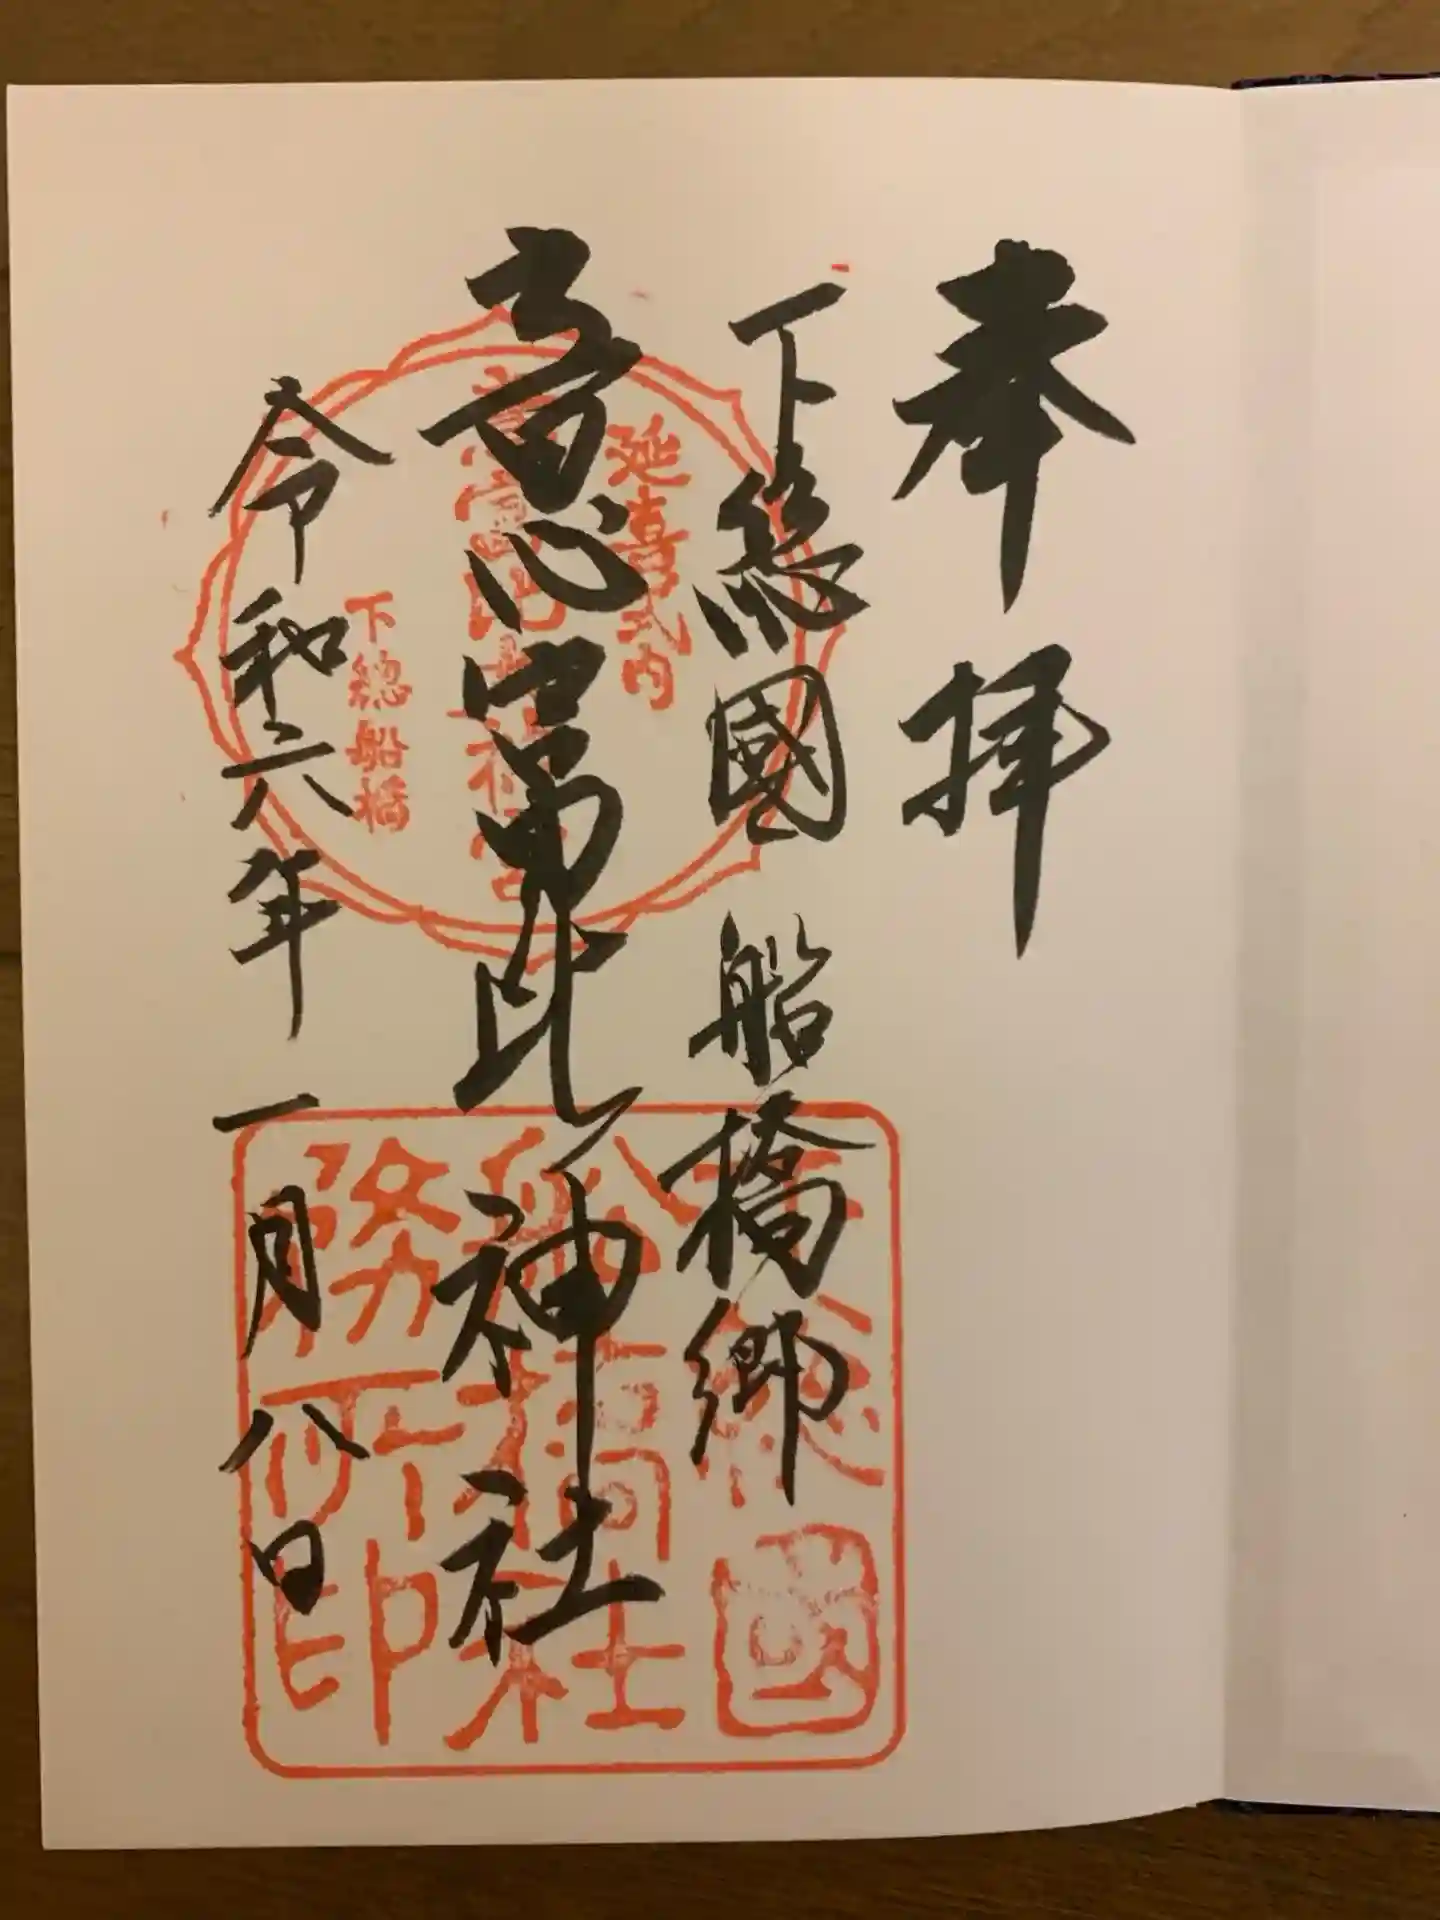 奉拝
下総國 船橋郷
意富比神社
令和六年 一月八日
延喜式内
下總船橋
船橋社
務所印